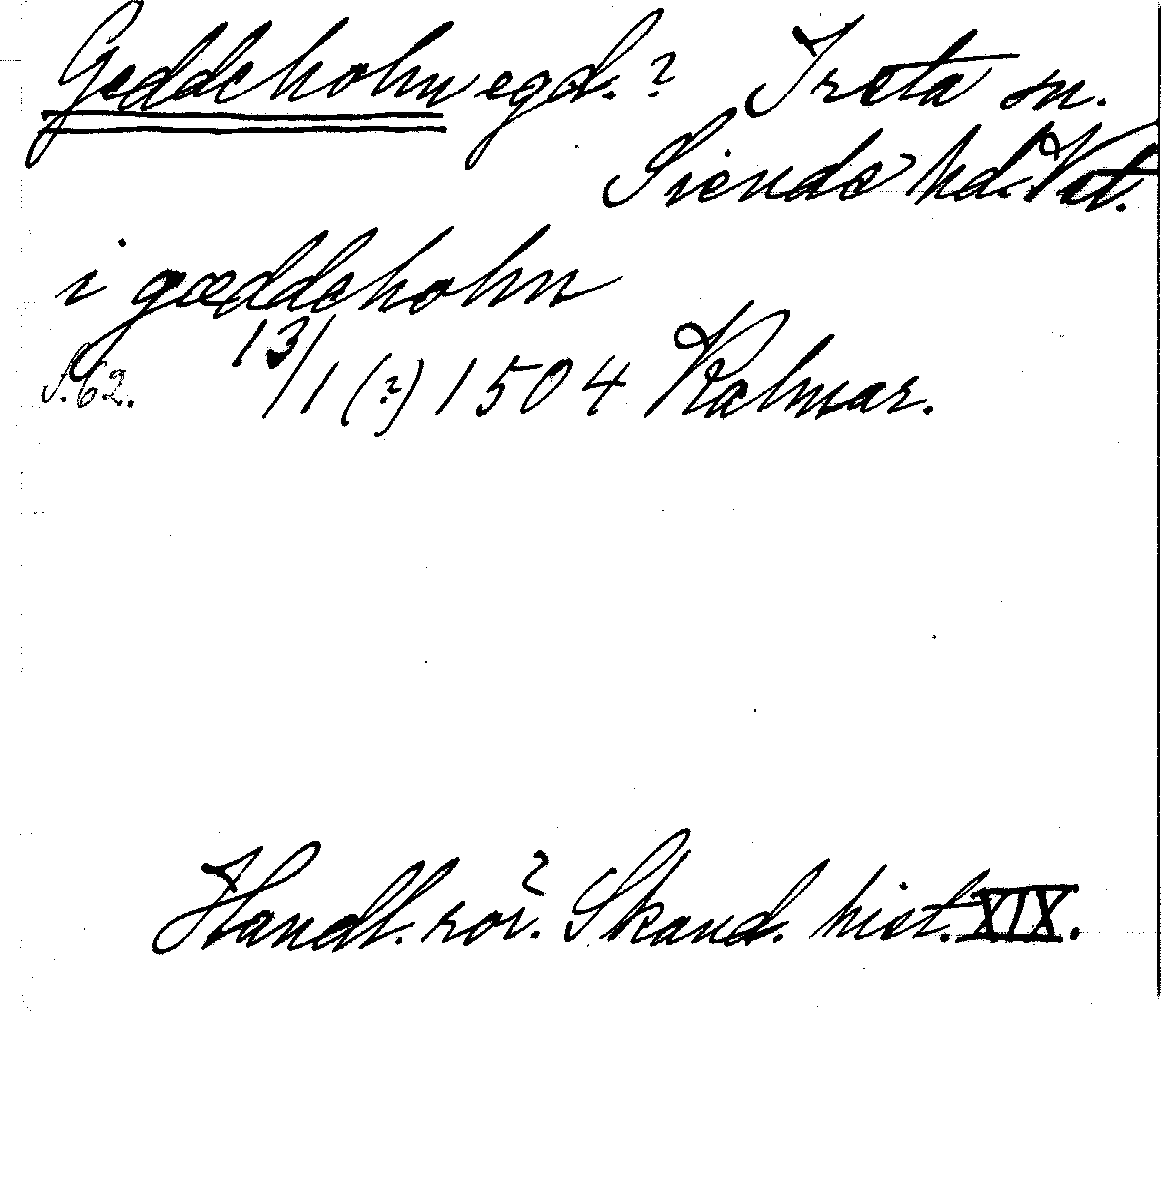 Geddeholm egd.? Ireta sn.
Siende hd. Vstm.
i gæddeholm
s. 62. 13/1 (?) 1504 Kalmar.
Handl. rör. Skand. hist. XIX.